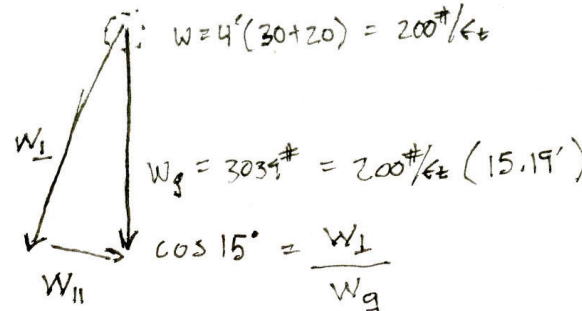 w = 4' (30+20) = 200#/Ft
W⊥
Wg = 3039# = 200#/Ft (15.19')
cos 15° = W⊥ / Wg
W||